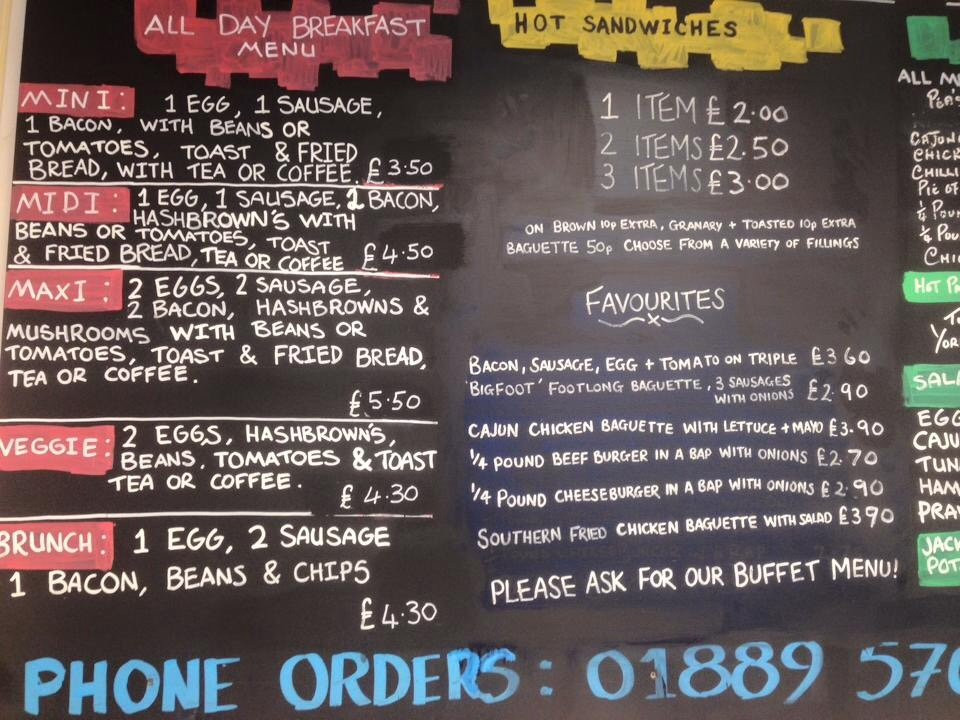 ALL DAY BREAKFAST
MENU
MINI: 1 EGG, 1 SAUSAGE,
1 BACON, WITH BEANS OR
TOMATOES, TOAST & FRIED
BREAD, WITH TEA OR COFFEE. £3.50
MIDI: 1 EGG, 1 SAUSAGE, 2 BACON,
HASHBROWN'S WITH
BEANS OR TOMATOES, TOAST
& FRIED BREAD, TEA OR COFFEE £4.50
MAXI: 2 EGGS, 2 SAUSAGE,
2 BACON, HASHBROWNS &
MUSHROOMS WITH BEANS OR
TOMATOES, TOAST & FRIED BREAD,
TEA OR COFFEE.
£5.50
VEGGIE: 2 EGGS, HASHBROWN'S,
BEANS, TOMATOES & TOAST
TEA OR COFFEE.
£4.30
BRUNCH: 1 EGG, 2 SAUSAGE
1 BACON, BEANS & CHIPS
£4.30
HOT SANDWICHES
1 ITEM £2.00
2 ITEMS £2.50
3 ITEMS £3.00
ON BROWN 10p EXTRA, GRANARY + TOASTED 10p EXTRA
BAGUETTE 50p CHOOSE FROM A VARIETY OF FILLINGS
FAVOURITES
BACON, SAUSAGE, EGG + TOMATO ON TRIPLE £3.60
'BIGFOOT' FOOTLONG BAGUETTE, 3 SAUSAGES
WITH ONIONS £2.90
CAJUN CHICKEN BAGUETTE WITH LETTUCE + MAYO £3.90
1/4 POUND BEEF BURGER IN A BAP WITH ONIONS £2.70
1/4 POUND CHEESEBURGER IN A BAP WITH ONIONS £2.90
SOUTHERN FRIED CHICKEN BAGUETTE WITH SALAD £3.90
PLEASE ASK FOR OUR BUFFET MENU!
ALL M
CAJUN
CHICK
CHILLI
PIE OF
1/4 POU
1/4 POU
CHI
HOT P
YOR
SALA
EGG
CAJU
TUN
HAM
PRA
JACK
POT
PHONE ORDERS: 01889 570